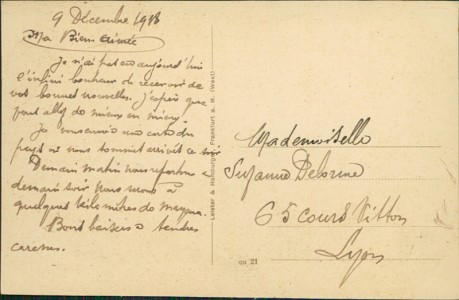 9 Décembre 1918
Ma Bien Aimée
Je n'ai pas eu aujourd'hui
l'infini bonheur de recevoir de
vos bonnes nouvelles. J'espère que
tout va de mieux en mieux.
Je vous envoie une carte du
pays où nous sommes arrivés ce soir
Demain matin nous repartons &
demain soir nous serons à
quelques kilomètres de Mayence.
Bons baisers & tendres
caresses.
Leister & Hamburger, Frankfurt a. M. (West)
Mademoiselle
Suzanne Delorme
65 cours Vitton
Lyon
21